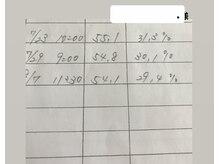 7/23 10=00 55,1 31,3%
7/29 9=00 54,8 30,1%
8/7 11=30 54,1 29,4%